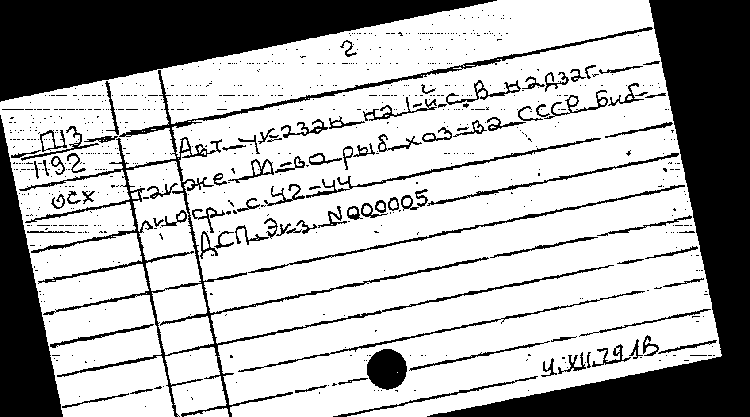 2
П13
1192
осх
Авт. указан на 1-й с. В надзаг.
также: М-во рыб. хоз-ва СССР. Биб-
лиогр.: с. 42-44
ДСП. Экз. N000005.
4.XII.79 1В